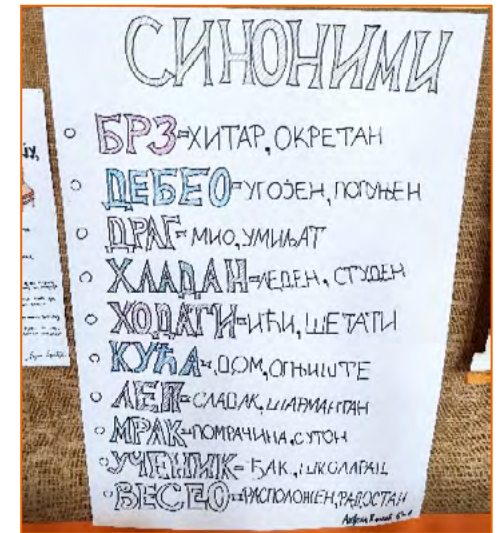 СИНОНИМИ
БРЗ=ХИТАР, ОКРЕТАН
ДЕБЕО=УГОЈЕН, ПОПУЊЕН
ДРАГ=МИО, УМИЉАТ
ХЛАДАН=ЛЕДЕН, СТУДЕН
ХОДАТИ=ИЋИ, ШЕТАТИ
КУЋА=ДОМ, ОГЊИШТЕ
ЛЕП=СЛАДАК, ШАРМАНТАН
МРАК=ПОМРАЧИНА, СУТОН
УЧЕНИК=ЂАК, ШКОЛАРАЦ
ВЕСЕО=РАСПОЛОЖЕН, РАДОСТАН